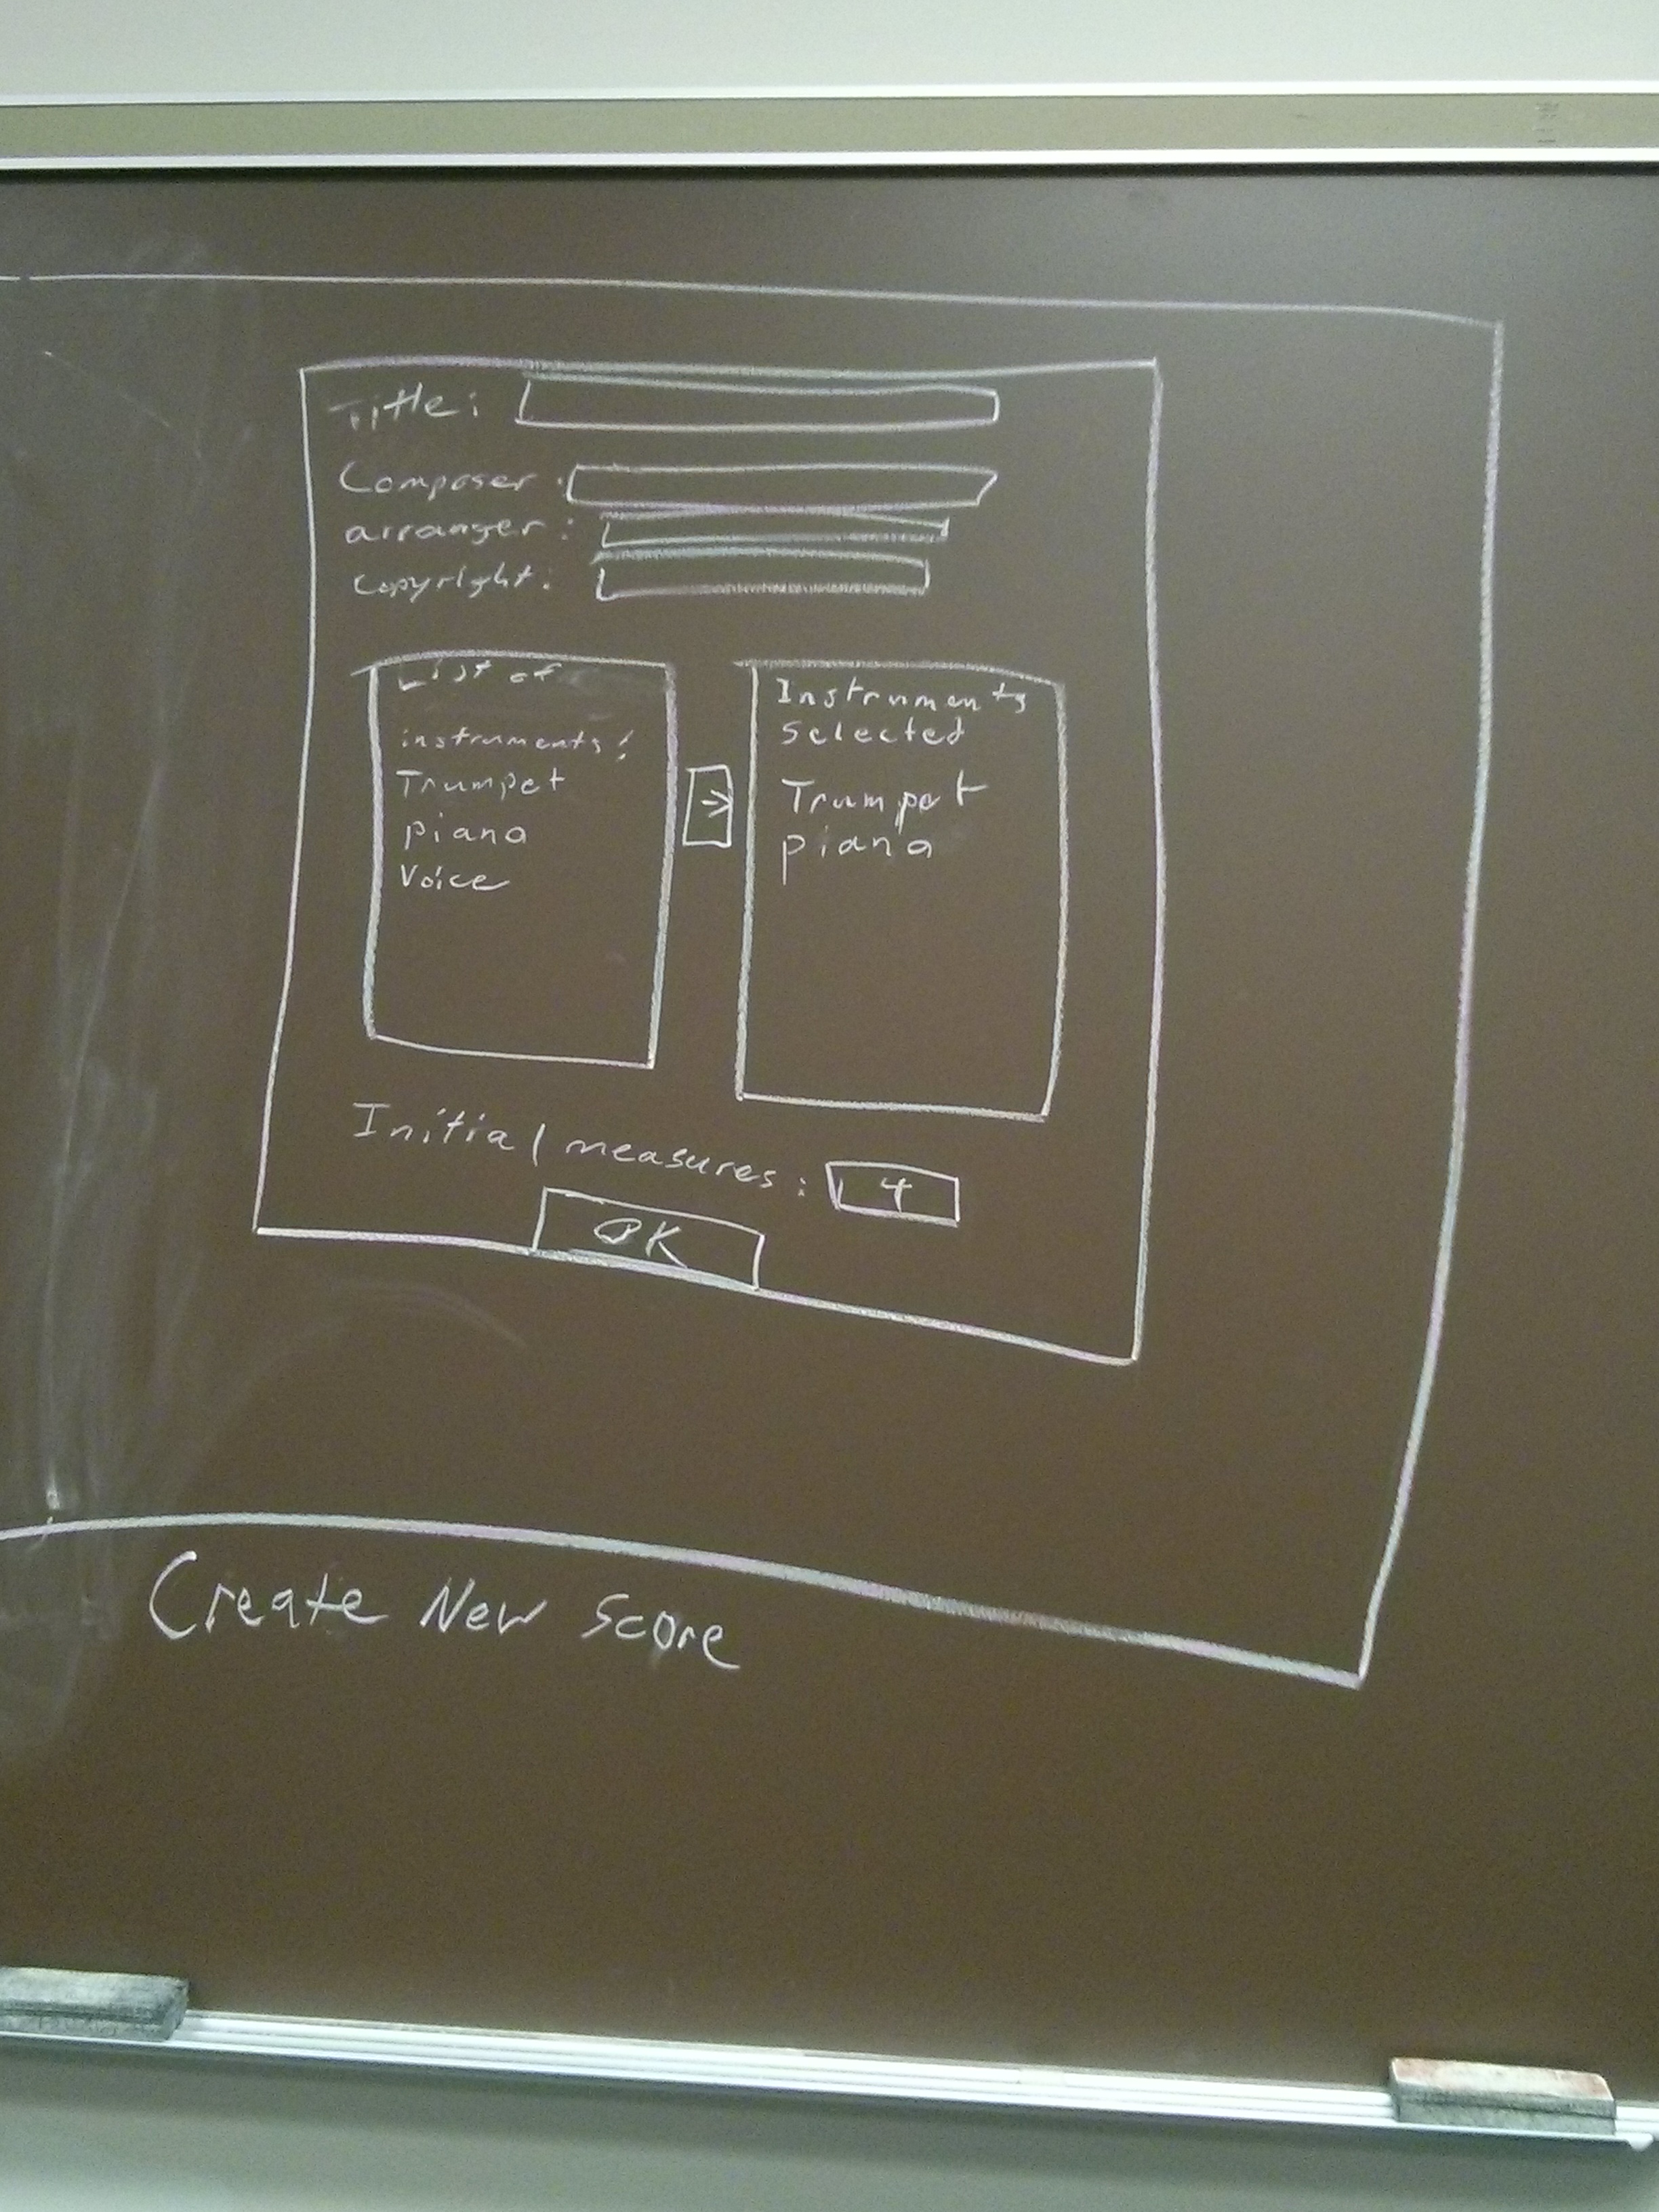 Title:
Composer:
arranger:
copyright:
List of
instruments:
Trumpet
piano
Voice
→
Instruments
selected
Trumpet
piano
Initial measures: 4
OK
Create New Score